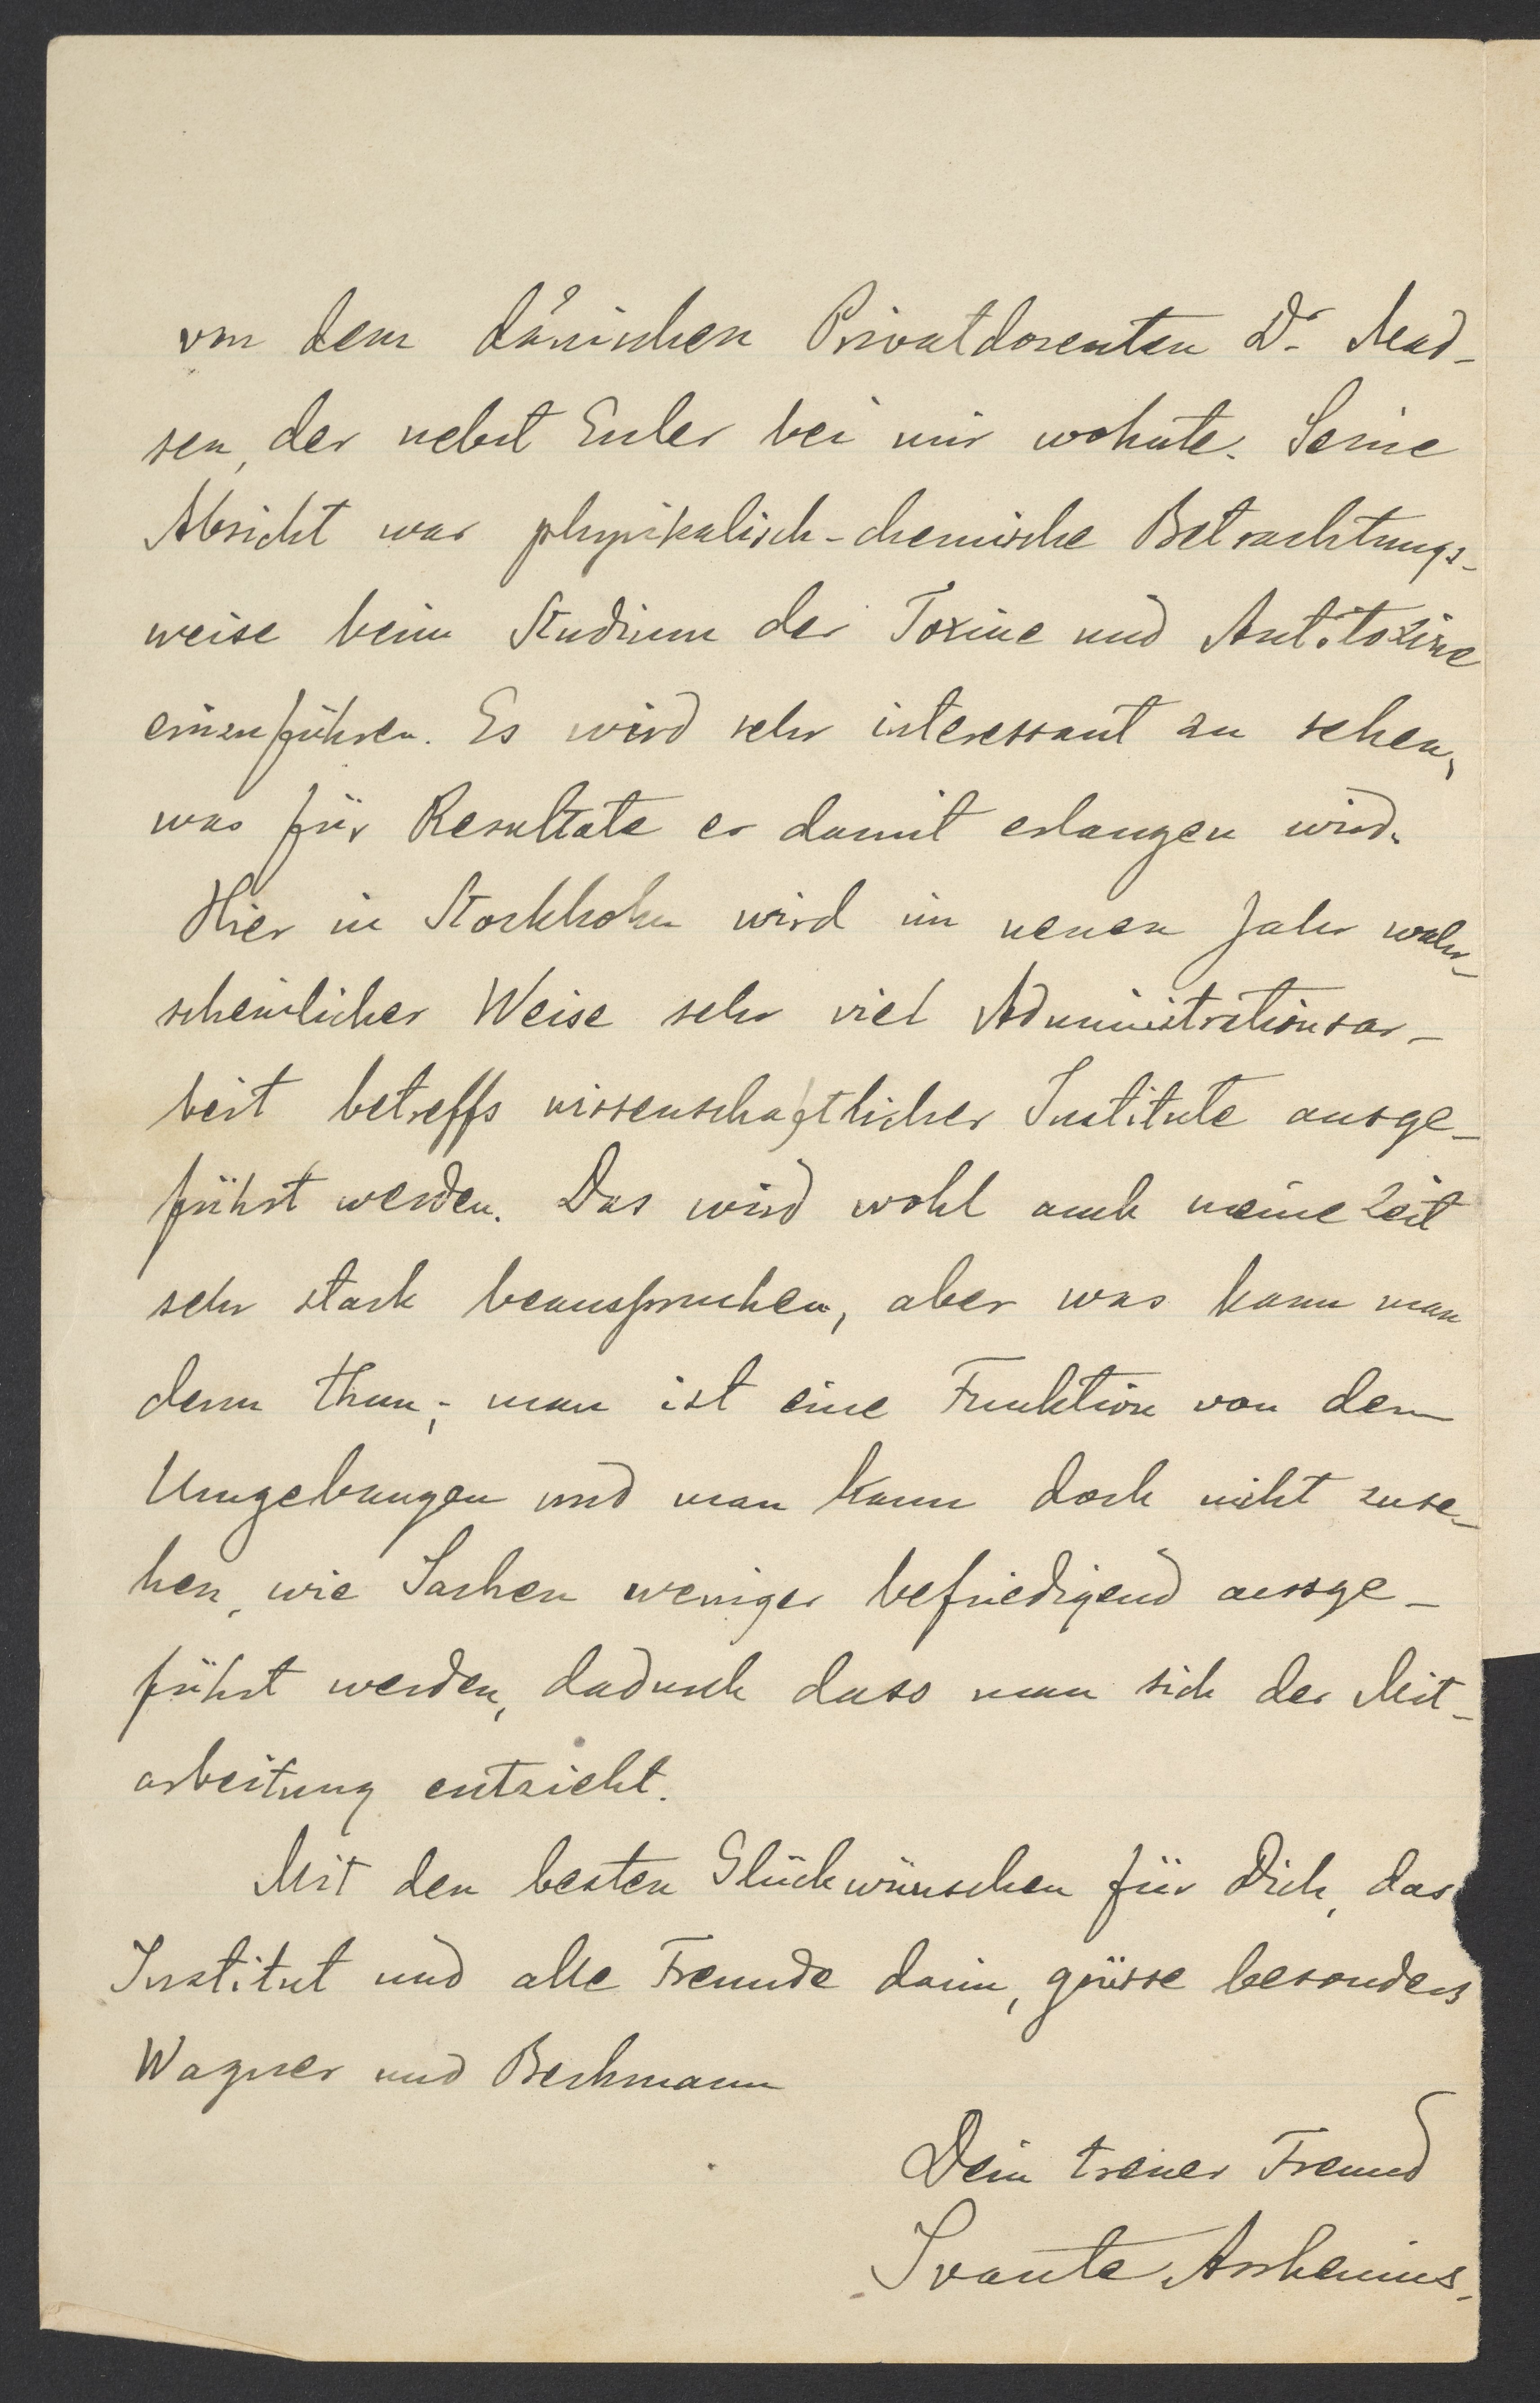 von dem dänischen Privatdozenten Dr Mad-
sen, der nebst Euler bei mir wohnte. Seine
Absicht war physikalisch-chemische Betrachtungs-
weise beim Studium der Toxine und Antitoxine
einzuführen. Es wird sehr interessant zu sehen,
was für Resultate er damit erlangen wird.
Hier in Stockholm wird im neuen Jahr wahr-
scheinlicher Weise sehr viel Administrationsar-
beit betreffs wissenschaftlicher Institute ausge-
führt werden. Das wird wohl auch meine Zeit
sehr stark beanspruchen, aber was kann man
denn thun; man ist eine Funktion von den
Umgebungen und man kann doch nicht zuse-
hen, wie Sachen weniger befriedigend ausge-
führt werden, dadurch dass man sich der Mit-
arbeitung entzieht.
Mit den besten Glückwünschen für Dich, das
Institut und alle Freunde darin, grüsse besonders
Wagner und Beckmann
Dein treuer Freund
Svante Arrhenius.